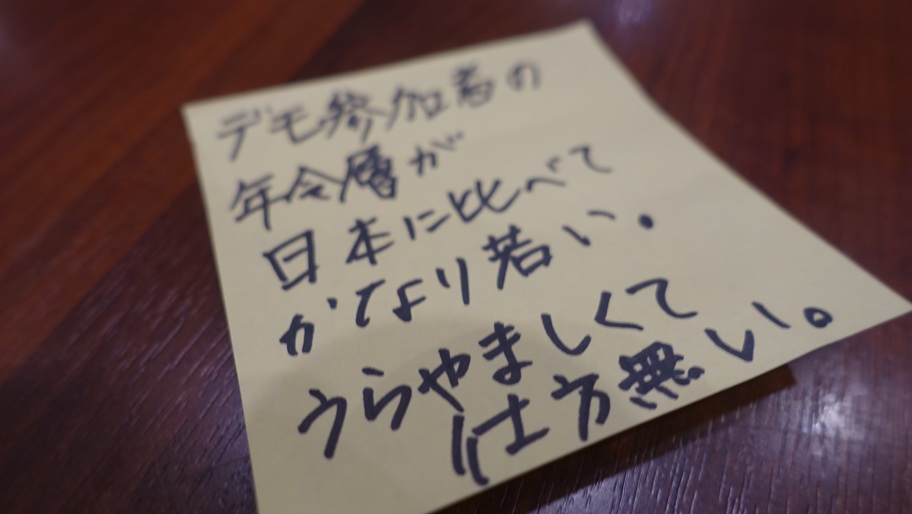 デモ参加者の
年令層が
日本に比べて
かなり若い。
うらやましくて
仕方無い。